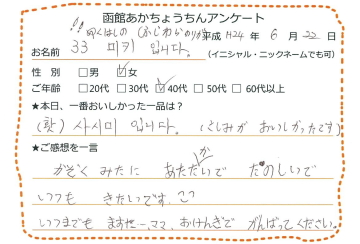 函館あかちょうちんアンケート
平成 H24 年 6 月 22 日
お名前 33 미키 입니다. (イニシャル・ニックネームでも可)
性 別 □男 ☑女
ご年齢 □20代 □30代 ☑40代 □50代 □60代以上
★本日、一番おいしかった一品は?
사시미 입니다. (さしみが おいしかったです)
★ご感想を一言
かぞく みたいに あたたかいで たのしいで
いつも きたいです。
いつまでも ますたー、ママ、おけんきで がんばってください。